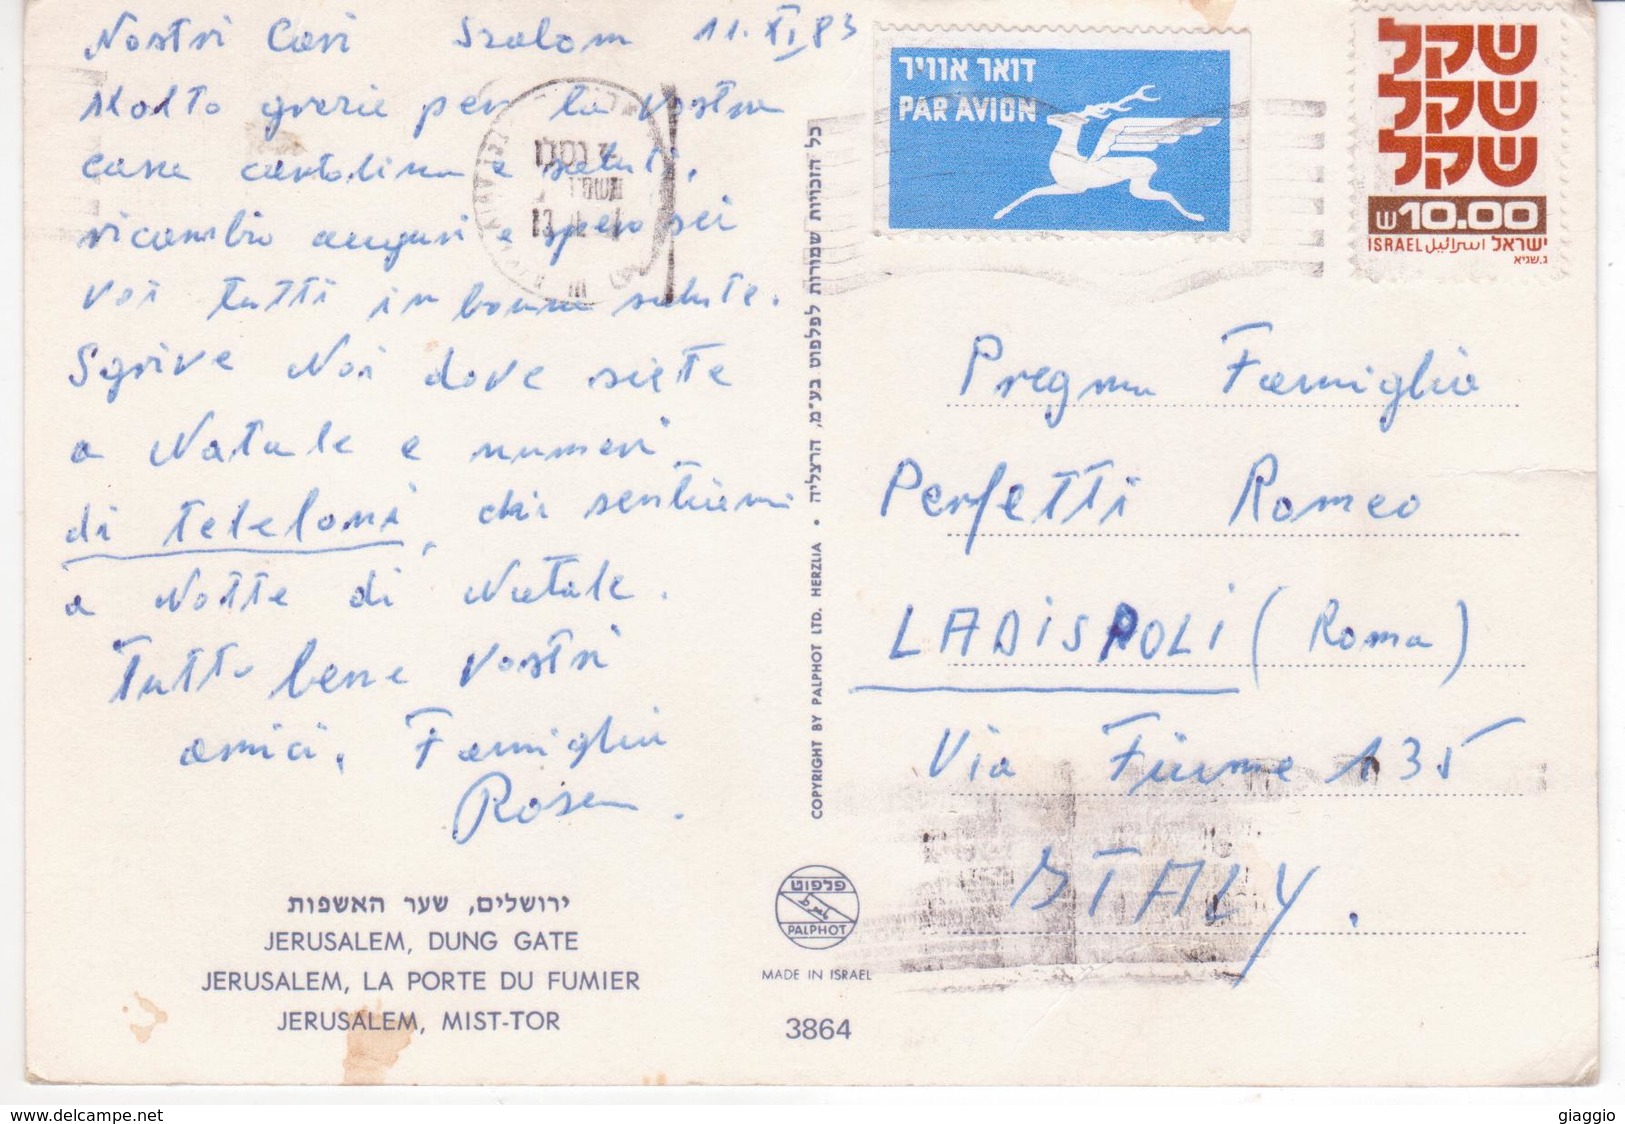 Nostri Cari Szalom 11.XI 83
Molto grazie per la vostra
cara cartolina e saluti.
ricambio auguri e spero sei
voi tutti in bonna salute.
Sgrive Noi dove siete
a Natale e numeri
di teteloni, chi sentiremi
a Notte di Natale.
Tutto bene Vostri
amici, Famiglia
Rosen.
ירושלים, שער האשפות
JERUSALEM, DUNG GATE
JERUSALEM, LA PORTE DU FUMIER
JERUSALEM, MIST-TOR
כל הזכויות שמורות לפלפוט בע"מ, הרצליה • COPYRIGHT BY PALPHOT LTD. HERZLIA
פלפוט
PALPHOT
MADE IN ISRAEL
3864
דואר אוויר
PAR AVION
שקל
שקל
שקל
10.00
ISRAEL اسرائيل ישראל
ג.שגיא
Pregma Famiglia
Perfetti Romeo
LADISPOLI (Roma)
Via Fiume 135
ITALY.
www.delcampe.net
giaggio